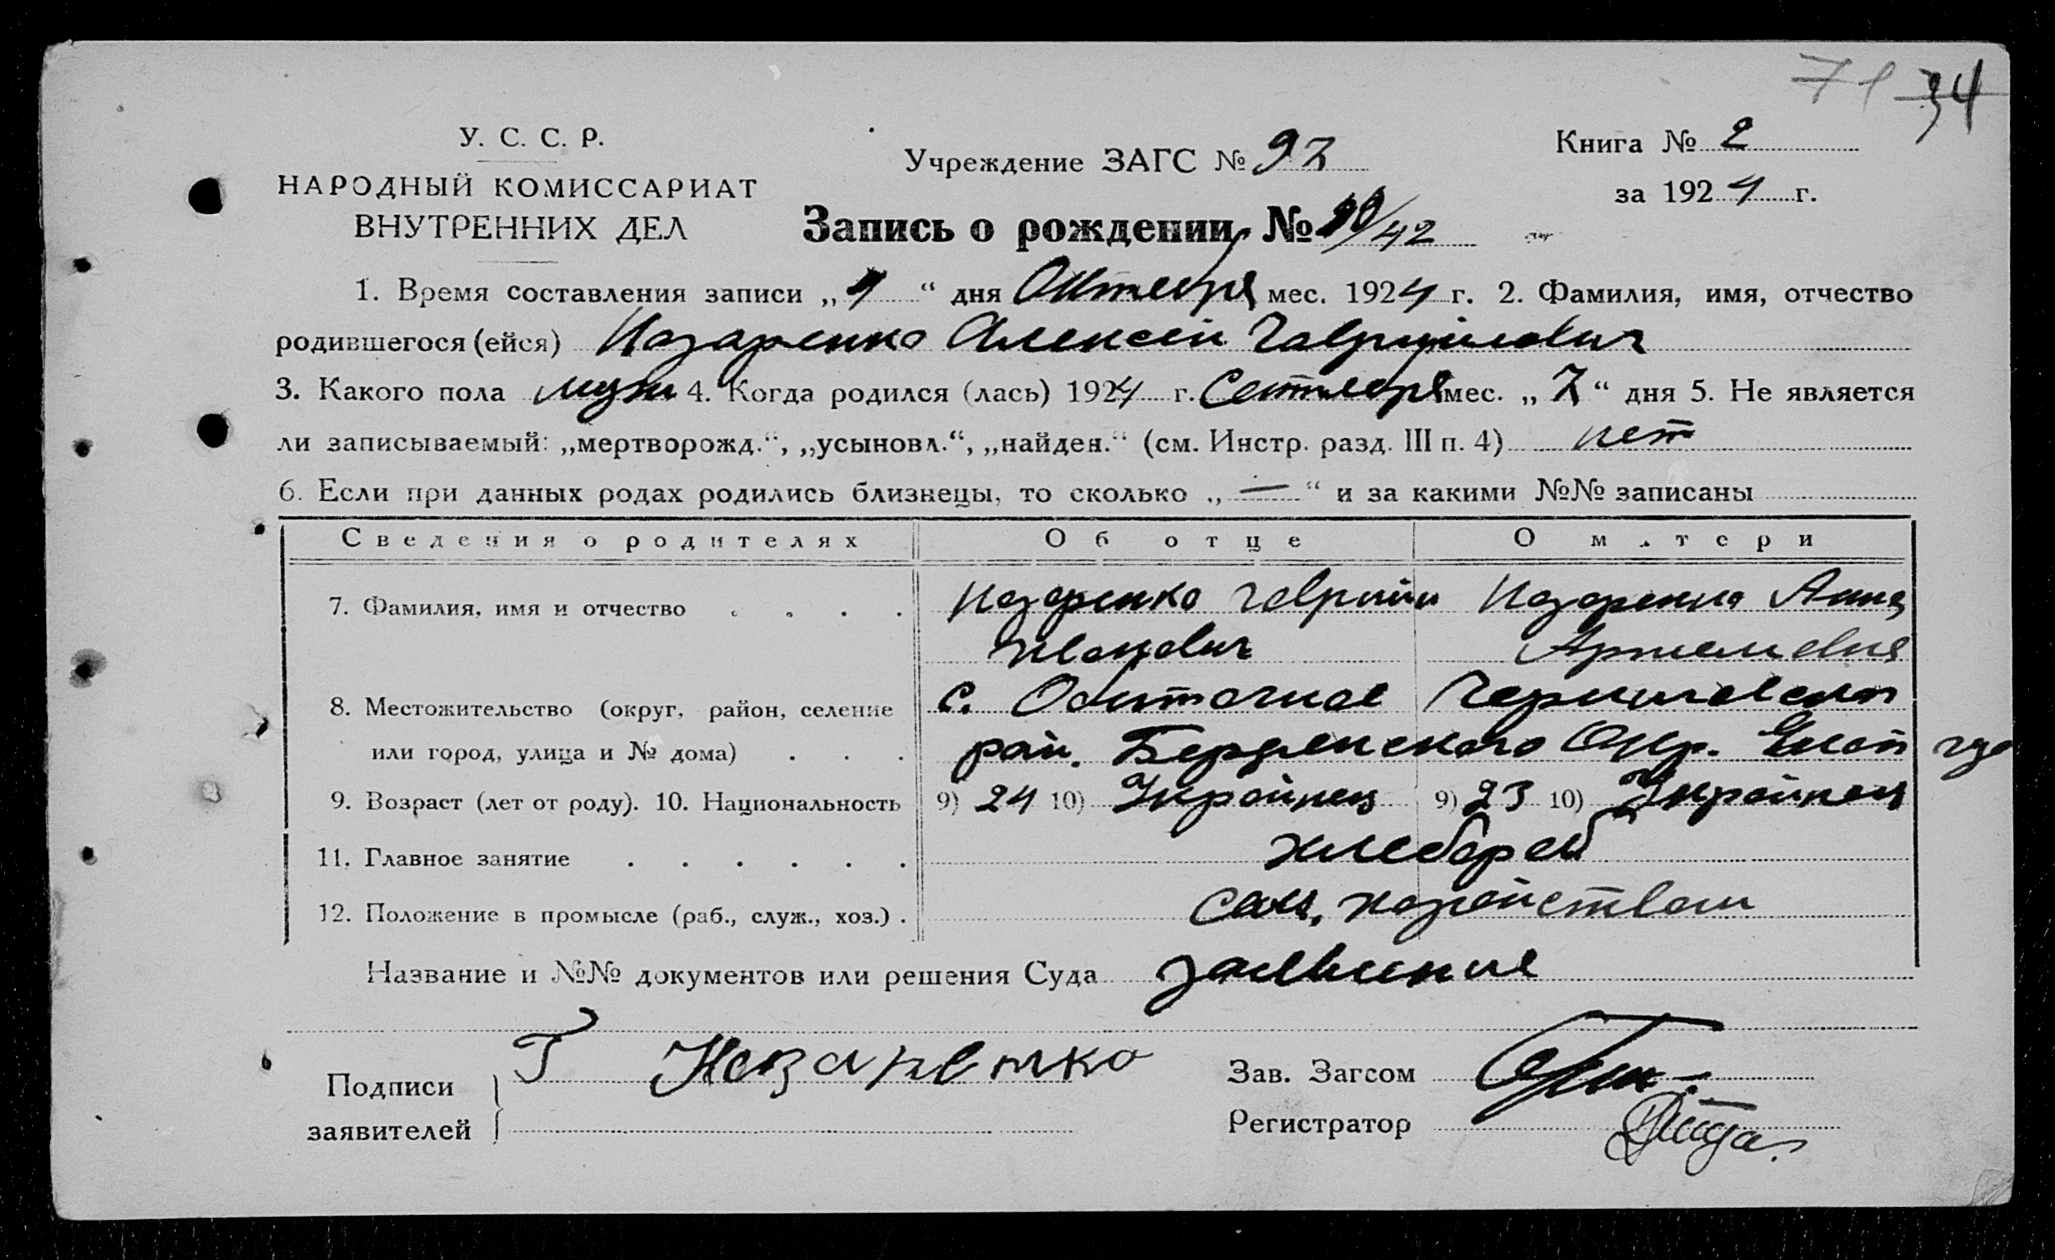 71 34
У. С. С. Р.
НАРОДНЫЙ КОМИССАРИАТ
ВНУТРЕННИХ ДЕЛ
Учреждение ЗАГС №
Книга № 2
за 1924 г.
Запись о рождении № /42
1. Время составления записи „ “ дня Октября мес. 1924 г. 2. Фамилия, имя, отчество
родившегося (ейся) Назаренко Алексей Гавриилович
3. Какого пола муж 4. Когда родился (лась) 1924 г. Сентября мес. „ “ дня 5. Не является
ли записываемый: „мертворожд.“, „усыновл.“, „найден.“ (см. Инстр. разд. III п. 4) нет
6. Если при данных родах родились близнецы, то сколько „ — “ и за какими №№ записаны
Сведения о родителях Об отце О матери
7. Фамилия, имя и отчество . . . . Назаренко Гавриил Назаренко Анна
Иванович Артемовна
8. Местожительство (округ, район, селение с. Обиточное
или город, улица и № дома) . . . рай. Бердянского Окр. Екат губ
9. Возраст (лет от роду). 10. Национальность 9) 24 10) Украинец 9) 23 10) Украинец
11. Главное занятие . . . . . . хлебороб
12. Положение в промысле (раб., служ., хоз.) . хозяйством
Название и №№ документов или решения Суда заявление
Подписи Г Назаренко
заявителей
Зав. Загсом
Регистратор